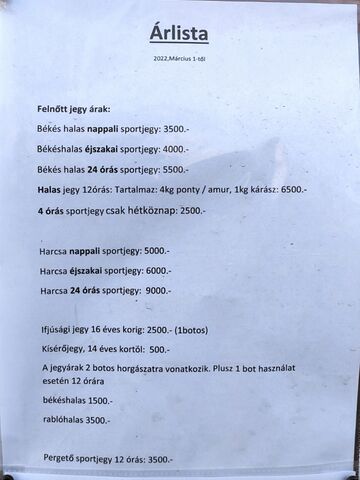 Árlista
2022,Március 1-től
Felnőtt jegy árak:
Békés halas nappali sportjegy: 3500.-
Békéshalas éjszakai sportjegy: 4000.-
Békés halas 24 órás sportjegy: 5500.-
Halas jegy 12órás: Tartalmaz: 4kg ponty / amur, 1kg kárász: 6500.-
4 órás sportjegy csak hétköznap: 2500.-
Harcsa nappali sportjegy: 5000.-
Harcsa éjszakai sportjegy: 6000.-
Harcsa 24 órás sportjegy: 9000.-
Ifjúsági jegy 16 éves korig: 2500.- (1botos)
Kísérőjegy, 14 éves kortól: 500.-
A jegyárak 2 botos horgászatra vonatkozik. Plusz 1 bot használat
esetén 12 órára
békéshalas 1500.-
rablóhalas 3500.-
Pergető sportjegy 12 órás: 3500.-